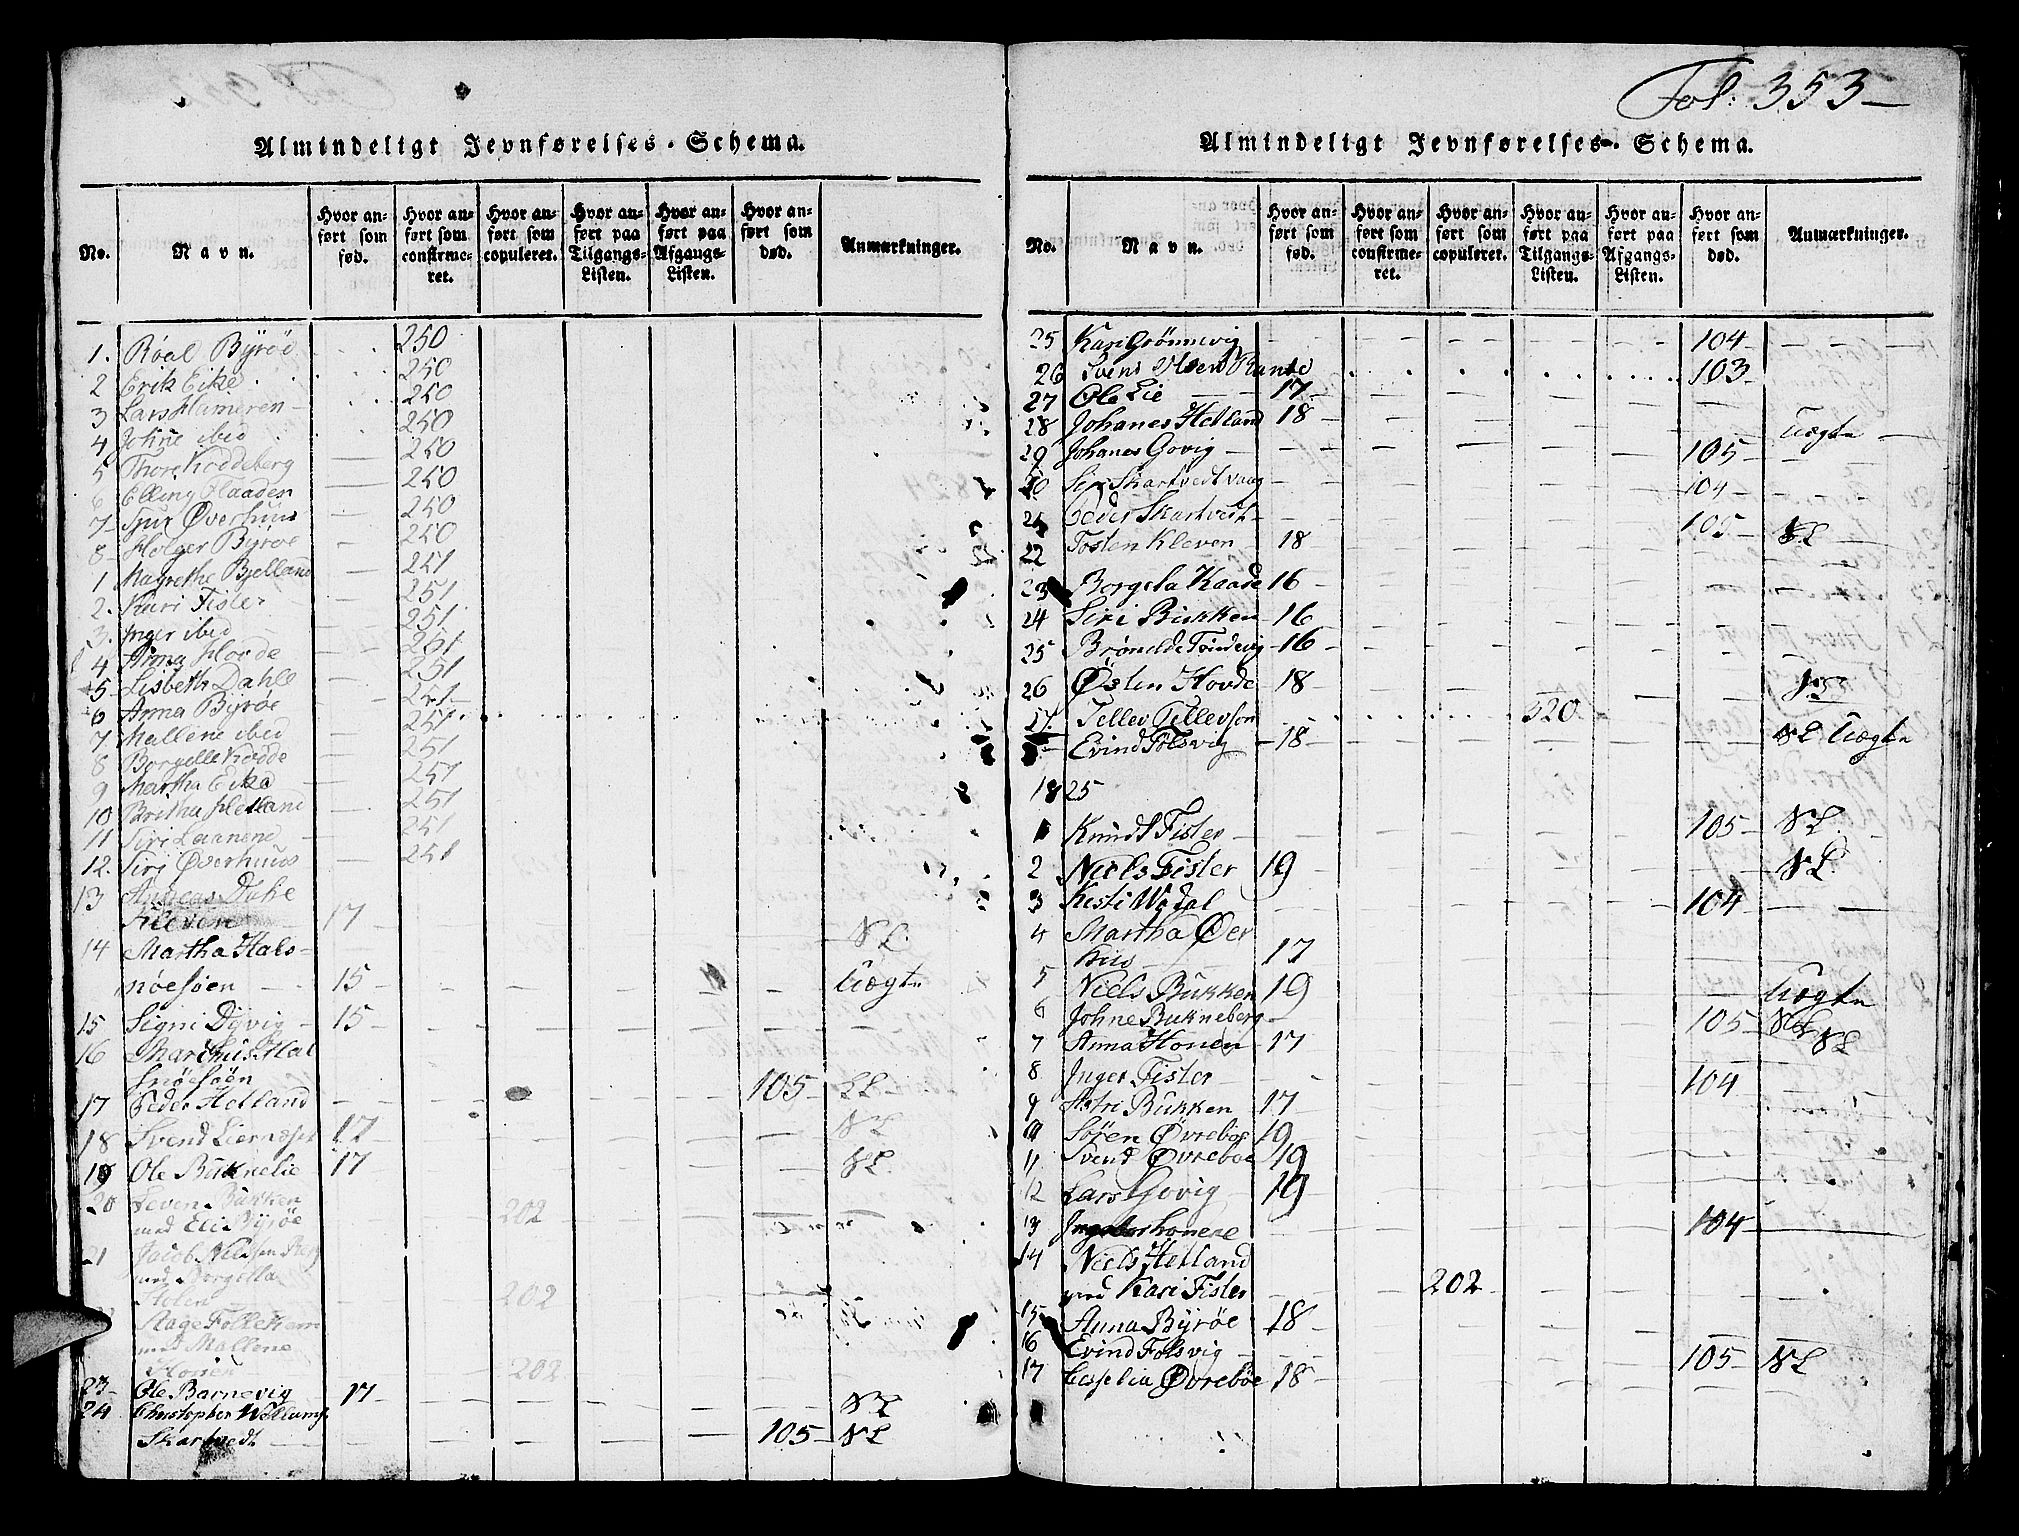 Fol: 353-
Almindeligt Jevnførelses-Schema.
No.
Navn.
Hvor an-
ført som
fød.
Hvor an-
ført som
confirme-
ret.
Hvor an-
ført som
copuleret.
Hvor an-
ført paa
Tilgangs-
Listen.
Hvor an-
ført paa
Afgangs-
Listen.
Hvor an-
ført som
død.
Anmærkninger.
1. Roal Byrøe 250
2 Erik Eike 250
3 Lars Hameren 250
4 Johne ibid 250
5 Thore Koddeberg 250
6 Elling Haaden 250
7 Sjur Øverhuus 250
8 Holger Byrøe 250
1 Magrethe Bjelland 251
2. Kari Fister 251
3. Inger ibid 251
4 Anna Hovde 251
5 Lisbeth Dahle 251
6 Anna Byrøe 251
7 Mallene ibid 251
8 Borgelle Kodde 251
9 Martha Eike 251
10 Britha Hetland 251
11 Siri Laanene 251
12. Siri Øverhuus 251
13 Andreas Dahle
Kleven 17 NL
14 Martha Hals-
nøesøen 15 Uægte
15 Signi Dyvig 15
16 Marthus Hal
snøesøen 105 LL
17 Peder Hetland
18 Svend Liernæset 17 NL
19 Ole Buknelie 17 NL
20 Steven Bukken
med Eli Byrøe 202
21 Jacob Nielsen Berg
med Borgella
Holen 202
Aage Folkekam
med Mallene
202
23 Ole Barnevig 17 NL
24 Christopher Villums.
Skartvedt 105 NL
Almindeligt Jevnførelses-Schema.
No.
Navn.
Hvor an-
ført som
fød.
Hvor an-
ført som
confirme-
ret.
Hvor an-
ført som
copuleret.
Hvor an-
ført paa
Tilgangs-
Listen.
Hvor an-
ført paa
Afgangs-
Listen.
Hvor an-
ført som
død.
Anmærkninger.
25 Kari Grønnevig 104
26 Svend Olsen Rande 103
27 Ole Lie 17
28 Johanes Hetland 18 Uægte
29 Johanes Govig 105
20 Siri Skartvedtvaag 104
21 Peder Skartvedt 105 NL
22 Tosten Kleven 18
23 Borgela Kaade 16
24 Siri Bukken 16
25 Brønelde Tøndevig 16
26 Østen Hovde 18
27 Tellev Tellevson 320
Evind Folsvig 18 NL Uægte
1825
1 Knud Fister 105 NL
2 Niels Fister 19 NL
3 Kesti Vadal 104
4 Martha Øer
huus 17
5 Niels Bukken 19 Uægte
6 Johne Bukneberg 105 NL
7 Anna Honen 17 NL
8 Inger Fister 104
9 Astri Bukken 17
10 Søren Øvrebøe 19
11 Svend Øvrebøe 19
12 Lars Govig 19
13 Ingebor honene 104
14 Niels Hetland
med Kari Fister 202
15 Anna Byrøe 18
16 Evind Folsvig 105 NL
17 Cesselia Øvrebøe 18